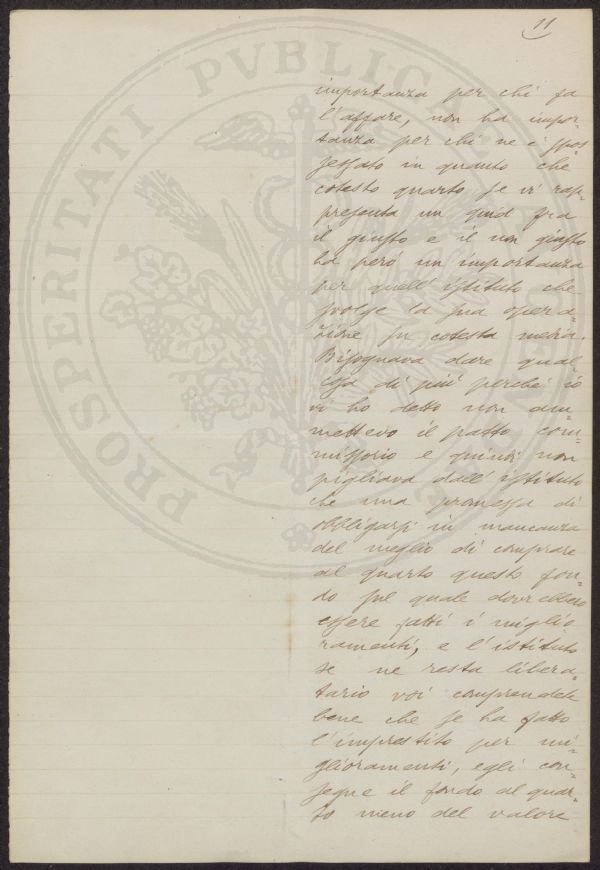 11
importanza per chi fa
l'affare, non ha impor-
tanza per chi ne è spos
sessato in quanto che
cotesto quarto se vi rap-
presenta un quid fra
il giusto e il non giusto
ha però un importanza
per quell'istituto che
svolge la sua opera-
zione su cotesta media.
Bisognava dare qual-
cosa di più perché io
vi ho detto non am-
mettevo il patto com-
missorio e quindi non
pigliava dall'istituto
che una promessa di
obbligarsi in mancanza
del meglio di comprare
al quarto questo fon-
do sul quale dovrebbero
essere fatti i miglio
ramenti, e l'istituto
se ne resta libera-
tario voi comprendete
bene che se ha fatto
l'imprestito per mi-
glioramenti, egli con-
segue il fondo al quar-
to meno del valore
PROSPERITATI PVBLICAE